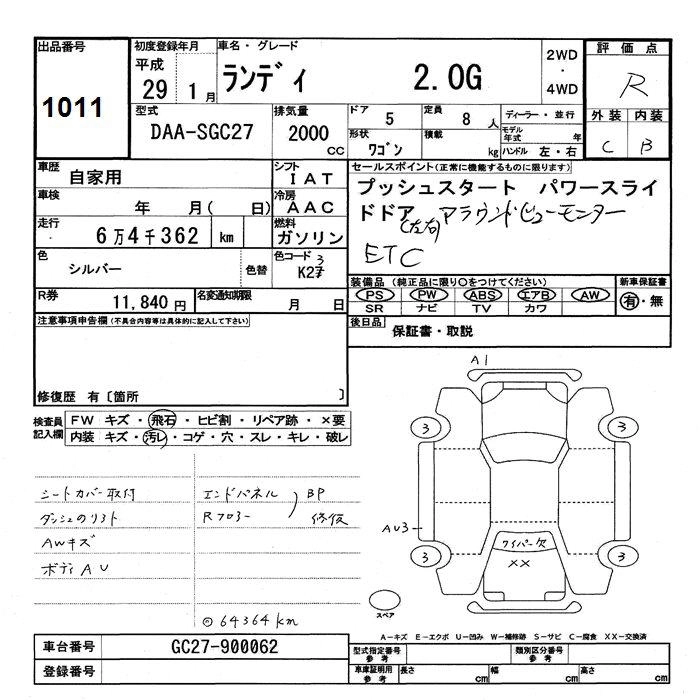 出品番号
1011
初度登録年月
平成
29 1月
車名・グレード
ランディ 2.0G
2WD
・
4WD
評価点
R
外装 内装
C B
型式
DAA-SGC27
排気量
2000
CC
ドア
5
定員
8 人
形状
ワゴン
積載
kg
ディーラー・並行
モデル年式 年
ハンドル 左・右
車歴
自家用
シフト
IAT
セールスポイント(正常に機能するものに限ります)
プッシュスタート パワースライ
ドドア(左右) アラウンドビューモニター
ETC
車検
年 月( 日)
冷房
AAC
走行
6万4千362 km
燃料
ガソリン
色
シルバー
色替
色コード
3
K27
装備品(純正品に限り○をつけてください)
PS PW ABS エアB AW
SR ナビ TV カワ
新車保証書
有・無
R券
11,840 円
名変通知期限
月 日
後日品
保証書・取説
注意事項申告欄(不具合内容等は具体的に記入して下さい)
修復歴 有〔箇所 〕
検査員
記入欄
FW キズ・飛石・ヒビ割・リペア跡・×要
内装 キズ・汚レ・コゲ・穴・スレ・キレ・破レ
シートカバー取付
ダッシュのりフト
AWキズ
ボディAU
エンドパネル
Rフロアー
BP
修仮
◎64364km
A1
3
3
3
3
AU3
ワイパー欠
XX
スペア
A-キズ E-エクボ U-凹み W-補修跡 S-サビ C-腐食 XX-交換済
車台番号
GC27-900062
登録番号
型式指定番号
参考
類別区分番号
参考
車庫証明用
参考
長さ cm
幅 cm
高さ cm